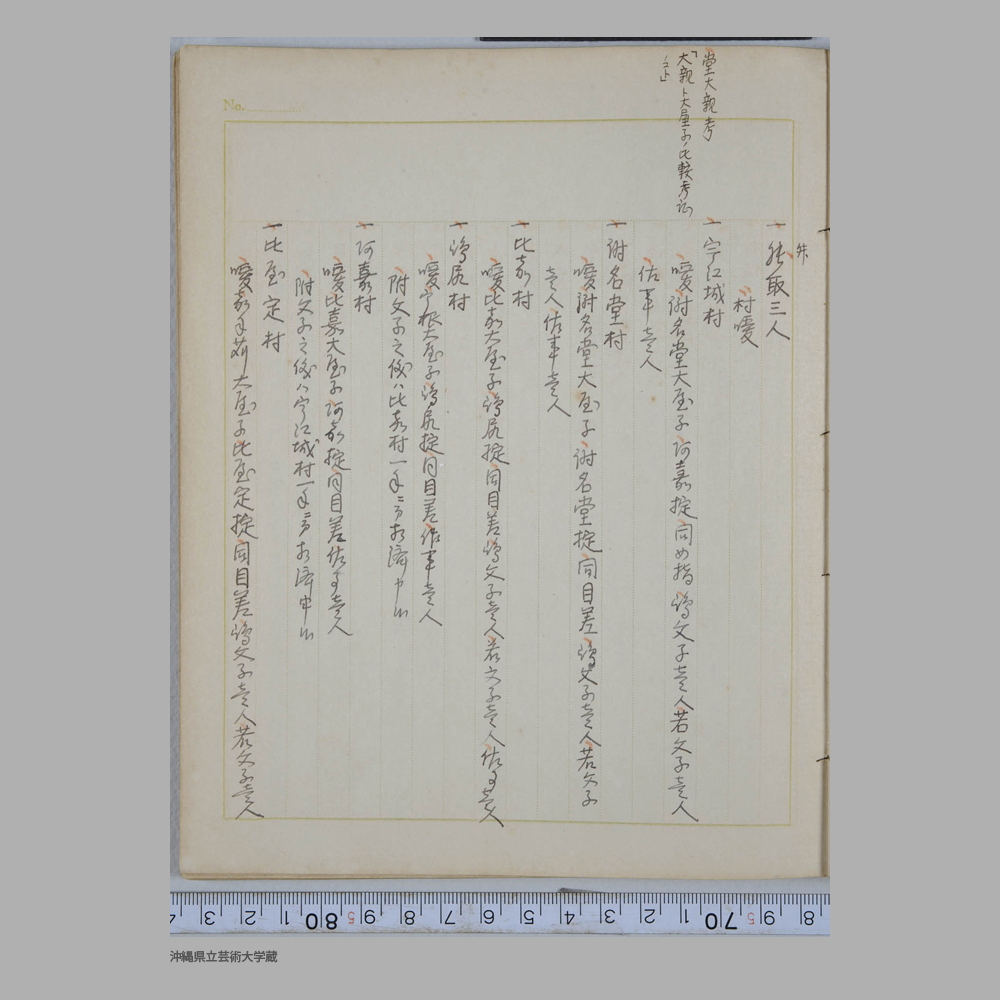 堂大親考
「大親ト大屋子ノ比較考証
コト」
弁
一 株取三人
村噯
一 宁江城村
噯謝名堂大屋子阿嘉掟同め指鳴文子壱人若文子壱人
佐事壱人
一 謝名堂村
噯謝名堂大屋子謝名堂掟同目差鳴文子壱人若文子
壱人佐事壱人
一 比嘉村
噯比嘉大屋子鳴尻掟同目差鳴文子壱人若文子壱人佐事壱人
一 鳴尻村
噯宁根大屋子鳴尻掟同目差佐事壱人
附文子之儀ハ比嘉村一手ニ而相済申候
一 阿嘉村
噯比嘉大屋子阿嘉掟同目差佐事壱人
附文子之儀ハ宁江城村一手ニ而相済申候
一 比屋定村
噯嘉手苅大屋子比屋定掟同目差鳴文子壱人若文子壱人
No.
4 3 2 1 80 9 8 7 6 5 4 3 2 1 70 9 8
沖縄県立芸術大学蔵